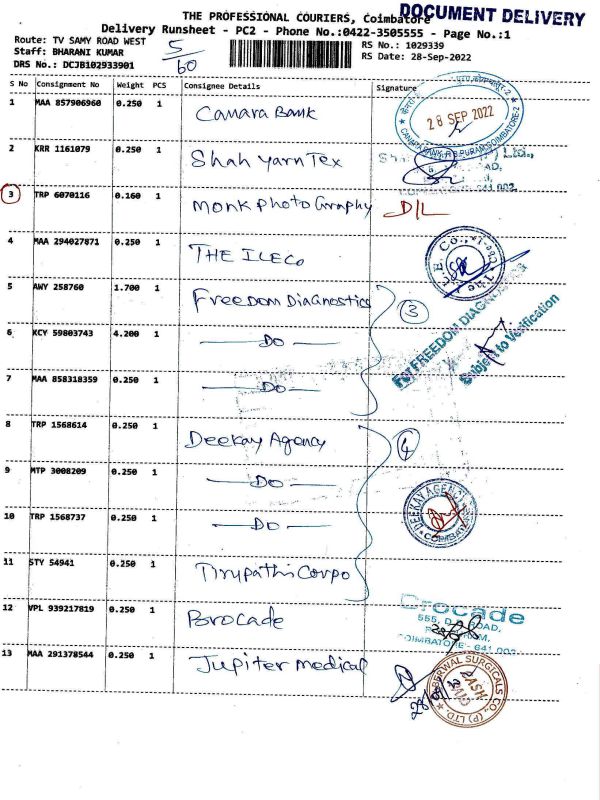 THE PROFESSIONAL COURIERS, Coimbatore
DOCUMENT DELIVERY
Delivery Runsheet - PC2 - Phone No.:0422-3505555 - Page No.:1
Route: TV SAMY ROAD WEST
RS No.: 1029339
Staff: BHARANI KUMAR
5/60
RS Date: 28-Sep-2022
DRS No.: DCJB102933901
S No Consignment No Weight PCS Consignee Details Signature
1 MAA 857906960 0.250 1 Canara Bank
28 SEP 2022
2 KRR 1161079 0.250 1 Shah Yarn Tex
3 TRP 6070116 0.160 1 Monk Photo Graphy D/L
4 MAA 294027871 0.250 1 THE ILECo
5 AWY 258760 1.700 1 Freedom Diagnostics 3
For FREEDOM DIAGNOSTICS
Subject to Verification
6 KCY 59803743 4.200 1 — Do —
7 MAA 858318359 0.250 1 — Do —
8 TRP 1568614 0.250 1 Deekay Agency 4
9 MTP 3008209 0.250 1 — Do —
DEEKAY AGENCY
10 TRP 1568737 0.250 1 — Do —
11 STY 54941 0.250 1 Tirupathi Corpo
12 VPL 939217819 0.250 1 Brocade
Brocade
COIMBATORE - 641 002
13 MAA 291378544 0.250 1 Jupiter medical